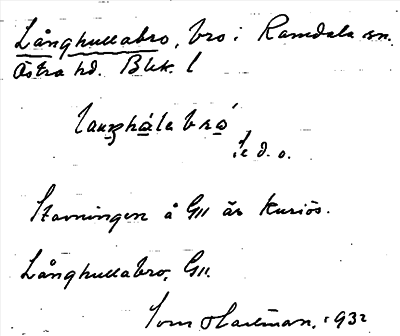 Långhullabro, bro i Ramdala sn.
Östra hd. Blek. l
Se d. o.
Stavningen å GK är kuriös.
Långhullabro, GK.
Tom Hartman, 1932